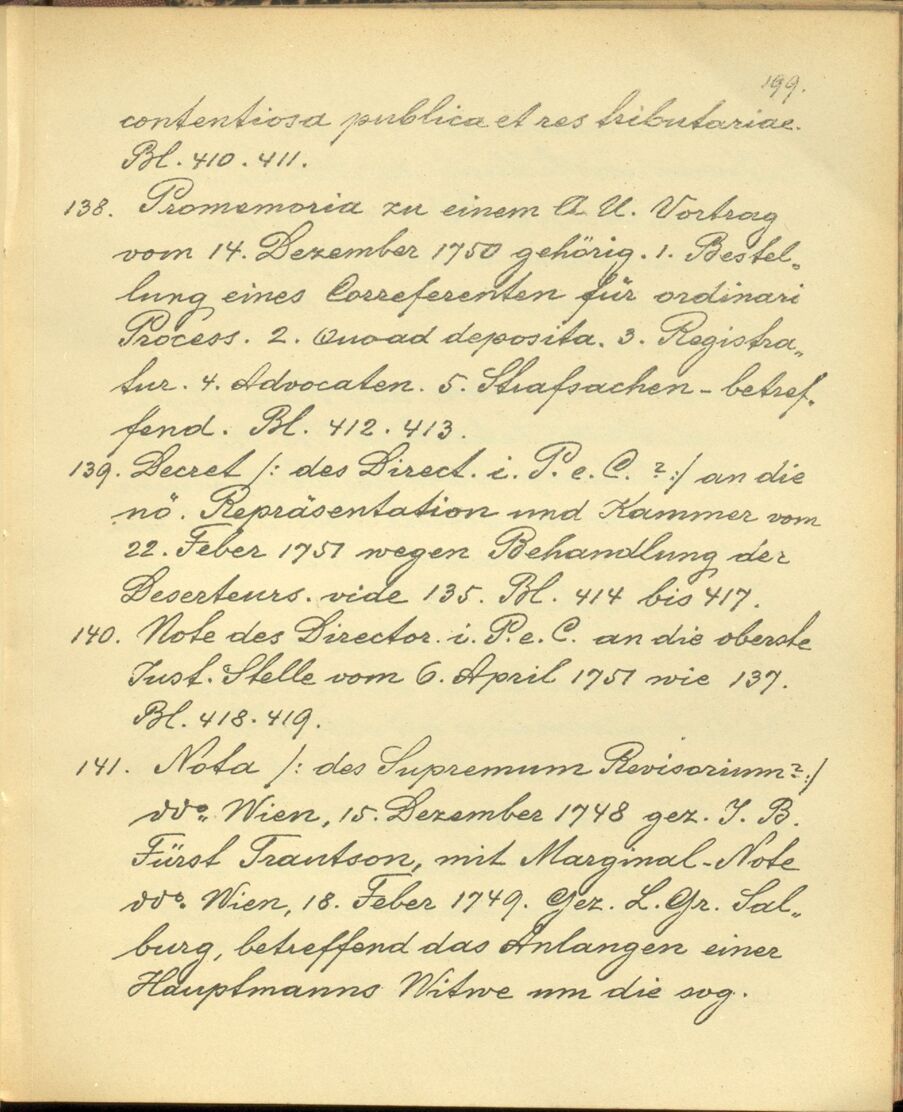 199.
contentiosa publica et res tributariae.
Bl. 410. 411.
138. Promemoria zu einem A. U. Vortrag
vom 14. Dezember 1750 gehörig. 1. Bestel„
lung eines Correferenten für ordinari
Process. 2. Quoad deposita. 3. Registra„
tur. 4. Advocaten. 5. Strafsachen - betref„
fend. Bl. 412. 413.
139. Decret /: des Direct. i. P. e. C. ? :/ an die
nö. Repräsentation und Kammer vom
22. Feber 1751 wegen Behandlung der
Deserteurs. vide 135. Bl. 414 bis 417.
140. Note des Director. i. P. e. C. an die oberste
Just. Stelle vom 6. April 1751 wie 137.
Bl. 418. 419.
141. Nota /: des Supremum Revisorium ? :/
ddo. Wien, 15. Dezember 1748 gez. J. B.
Fürst Trautson, mit Marginal-Note
ddo. Wien, 18. Feber 1749. Gez. L. Gr. Sal„
burg, betreffend das Anlangen einer
Hauptmanns Witwe um die sog.